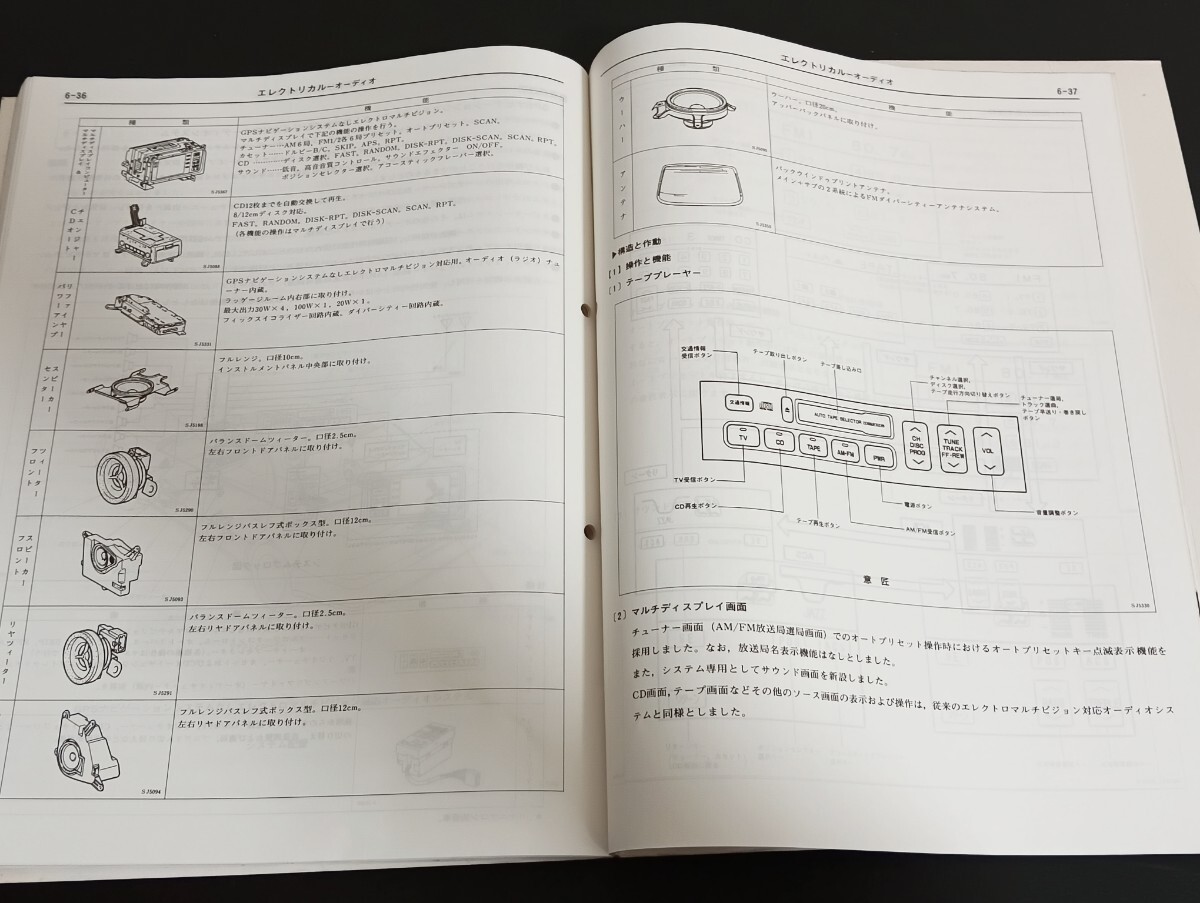 6-36
エレクトリカル－オーディオ
種 類
機 能
マルチディスプレイ＆
マルチディスプレイコンピューター
GPSナビゲーションシステムなしエレクトロマルチビジョン。
マルチディスプレイで下記の機能の操作を行う。
チューナー…AM６局、FM1/2各６局プリセット、オートプリセット、SCAN。
カセット……ドルビーB/C、SKIP、APS、RPT。
CD …………ディスク選択、FAST、RANDOM、DISK-RPT、DISK-SCAN、SCAN、RPT。
サウンド……低音、高音音質コントロール、サウンドエフェクター ON/OFF、
ポジションセレクター選択、アコースティックフレーバー選択。
CDオート
チェンジャー
CD12枚までを自動交換して再生。
8/12cmディスク対応。
FAST、RANDOM、DISK-RPT、DISK-SCAN、SCAN、RPT。
（各機能の操作はマルチディスプレイで行う）
パワーアンプ
GPSナビゲーションシステムなしエレクトロマルチビジョン対応用。オーディオ（ラジオ）チュ
ーナー内蔵。
ラッゲージルーム内右部に取り付け。
最大出力30W×４、100W×１、20W×１。
フィックスイコライザー回路内蔵。ダイバーシティー回路内蔵。
SJ5331
センター
スピーカー
フルレンジ。口径10cm。
インストルメントパネル中央部に取り付け。
フロント
ツィーター
バランスドームツィーター。口径2.5cm。
左右フロントドアパネルに取り付け。
フロント
スピーカー
フルレンジバスレフ式ボックス型。口径12cm。
左右フロントドアパネルに取り付け。
SJ5093
リヤツィーター
バランスドームツィーター。口径2.5cm。
左右リヤドアパネルに取り付け。
SJ5291
フルレンジバスレフ式ボックス型。口径12cm。
左右リヤドアパネルに取り付け。
SJ5094
エレクトリカル－オーディオ
6-37
種 類
機 能
ウーハー
ウーハー。口径20cm。
アッパーバックパネルに取り付け。
アンテナ
バックウインドゥプリントアンテナ。
メインとサブの２系統によるFMダイバーシティーアンテナシステム。
▶構造と作動
【１】操作と機能
〔１〕テーププレーヤー
交通情報
受信ボタン
テープ取り出しボタン
テープ差し込み口
チャンネル選択、
ディスク選択、
テープ走行方向切り替えボタン
チューナー選局、
トラック選曲、
テープ早送り・巻き戻し
ボタン
交通情報
AUTO TAPE SELECTOR
TV
CD
TAPE
AM-FM
PWR
CH
DISC
PROG
TUNE
TRACK
FF·REW
VOL
TV受信ボタン
CD再生ボタン
テープ再生ボタン
AM/FM受信ボタン
電源ボタン
音量調整ボタン
意 匠
SJ5330
〔２〕マルチディスプレイ画面
チューナー画面（AM/FM放送局選局画面）でのオートプリセット操作時におけるオートプリセットキー点滅表示機能を
採用しました。なお、放送局名表示機能はなしとしました。
また、システム専用としてサウンド画面を新設しました。
CD画面，テープ画面などその他のソース画面の表示および操作は，従来のエレクトロマルチビジョン対応オーディオシス
テムと同様としました。